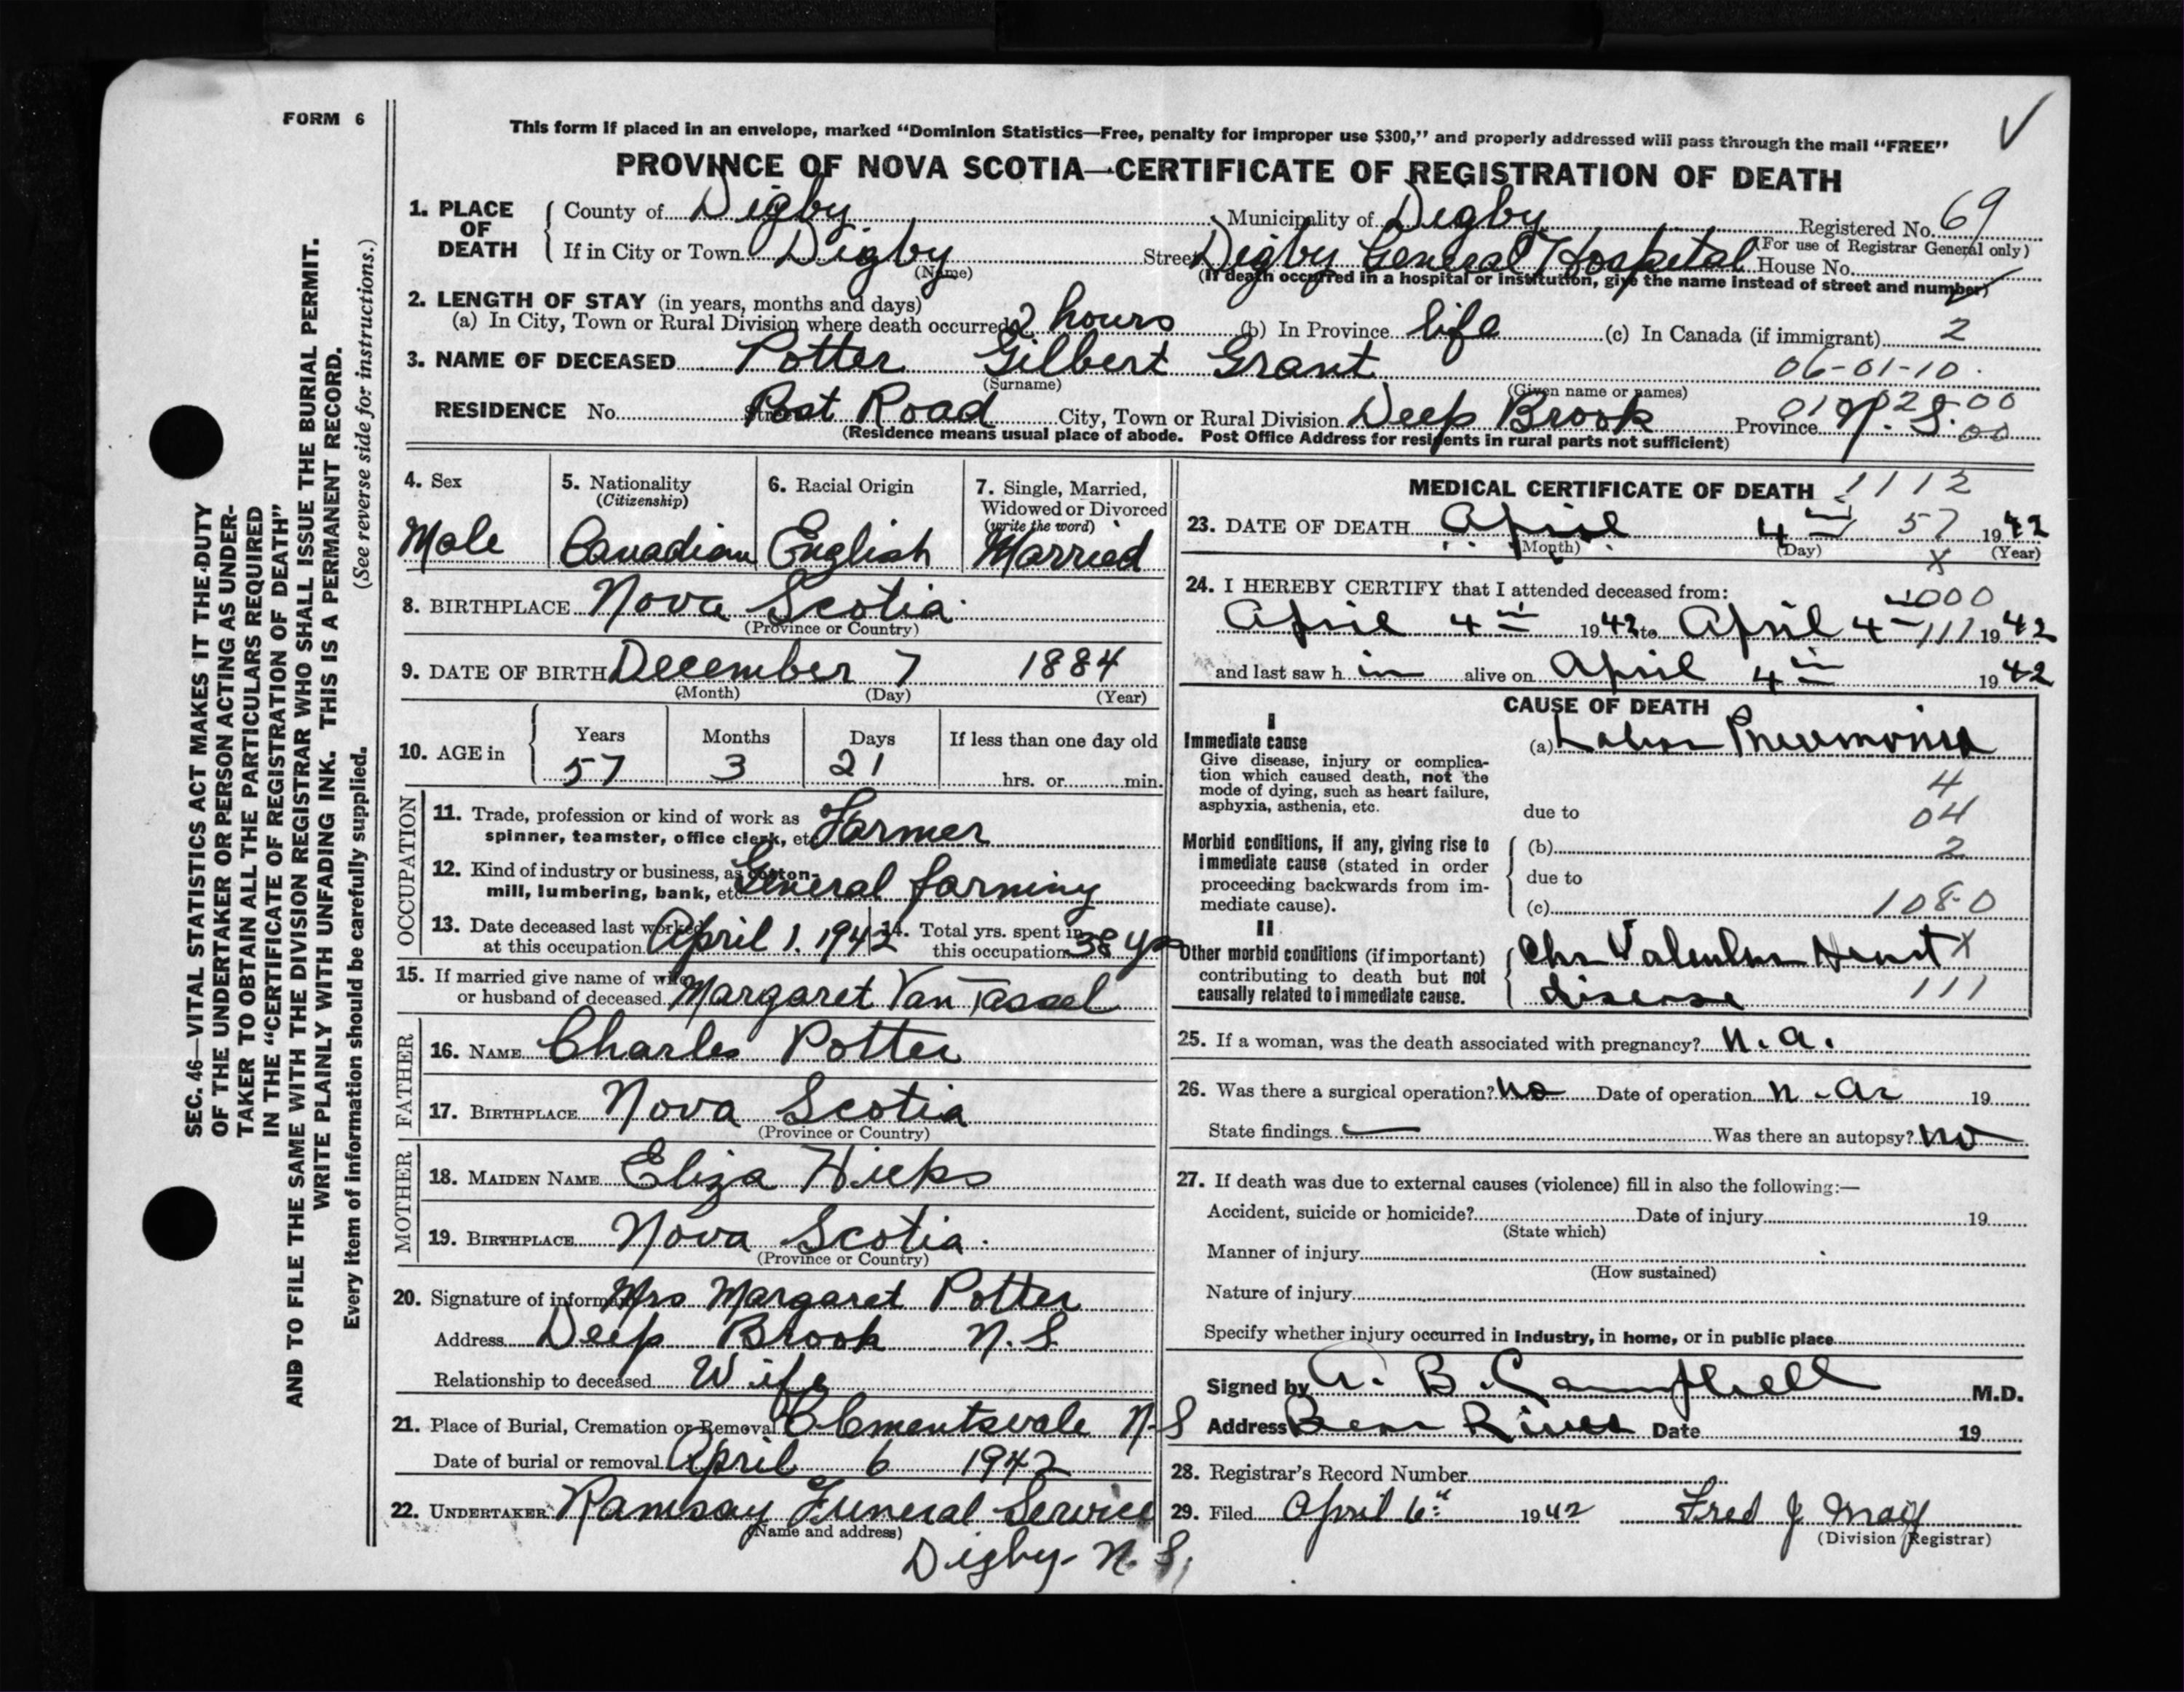 FORM 6
This form if placed in an envelope, marked "Dominion Statistics—Free, penalty for improper use $300," and properly addressed will pass through the mail "FREE"
PROVINCE OF NOVA SCOTIA—CERTIFICATE OF REGISTRATION OF DEATH
1. PLACE OF DEATH County of Digby Municipality of Digby Registered No. 69
(For use of Registrar General only)
If in City or Town Digby Street Digby General Hospital House No.
(Name) (If death occurred in a hospital or institution, give the name instead of street and number)
2. LENGTH OF STAY (in years, months and days)
(a) In City, Town or Rural Division where death occurred 2 hours (b) In Province life (c) In Canada (if immigrant) 2
3. NAME OF DECEASED Potter Gilbert Grant 06-01-10
(Surname) (Given name or names)
RESIDENCE No. Street Post Road City, Town or Rural Division Deep Brook Province N.S.
(Residence means usual place of abode. Post Office Address for residents in rural parts not sufficient)
4. Sex Male
5. Nationality (Citizenship) Canadian
6. Racial Origin English
7. Single, Married, Widowed or Divorced (write the word) Married
8. BIRTHPLACE Nova Scotia
(Province or Country)
9. DATE OF BIRTH December 7 1884
(Month) (Day) (Year)
10. AGE in Years Months Days If less than one day old
57 3 21 hrs. or min.
OCCUPATION
11. Trade, profession or kind of work as spinner, teamster, office clerk, etc. Farmer
12. Kind of industry or business, as cotton-mill, lumbering, bank, etc. General farming
13. Date deceased last worked at this occupation April 1. 1942
14. Total yrs. spent in this occupation 38 yrs
15. If married give name of wife or husband of deceased Margaret Van Tassel
FATHER
16. NAME Charles Potter
17. BIRTHPLACE Nova Scotia
(Province or Country)
MOTHER
18. MAIDEN NAME Eliza Hicks
19. BIRTHPLACE Nova Scotia
(Province or Country)
20. Signature of informant Mrs Margaret Potter
Address Deep Brook N.S
Relationship to deceased Wife
21. Place of Burial, Cremation or Removal Clementsvale N.S
Date of burial or removal April 6 1942
22. UNDERTAKER Ramsay Funeral Service
(Name and address)
Digby- N.S.
MEDICAL CERTIFICATE OF DEATH 1112
23. DATE OF DEATH April 4th 57 1942
(Month) (Day) (Year)
X
24. I HEREBY CERTIFY that I attended deceased from:
000
April 4th 1942 to April 4th 111 1942
and last saw him alive on April 4th 1942
CAUSE OF DEATH
I
Immediate cause (a) Lobar Pneumonia
Give disease, injury or complication which caused death, not the mode of dying, such as heart failure, asphyxia, asthenia, etc.
4
due to 04
Morbid conditions, if any, giving rise to immediate cause (stated in order proceeding backwards from immediate cause).
(b) 2
due to
(c) 108-0
II
Other morbid conditions (if important) contributing to death but not causally related to immediate cause.
Chr Valvular Heart X
disease 111
25. If a woman, was the death associated with pregnancy? N.a.
26. Was there a surgical operation? No Date of operation 19
State findings — Was there an autopsy? No
27. If death was due to external causes (violence) fill in also the following:—
Accident, suicide or homicide? Date of injury 19
(State which)
Manner of injury
(How sustained)
Nature of injury
Specify whether injury occurred in Industry, in home, or in public place
Signed by A. B. Campbell M.D.
Address Bear River Date 19
28. Registrar's Record Number
29. Filed April 6th 1942 Fred J
(Division Registrar)
SEC. 46—VITAL STATISTICS ACT MAKES IT THE DUTY
OF THE UNDERTAKER OR PERSON ACTING AS UNDER-
TAKER TO OBTAIN ALL THE PARTICULARS REQUIRED
IN THE "CERTIFICATE OF REGISTRATION OF DEATH"
AND TO FILE THE SAME WITH THE DIVISION REGISTRAR WHO SHALL ISSUE THE BURIAL PERMIT.
WRITE PLAINLY WITH UNFADING INK. THIS IS A PERMANENT RECORD.
Every item of information should be carefully supplied. (See reverse side for instructions.)